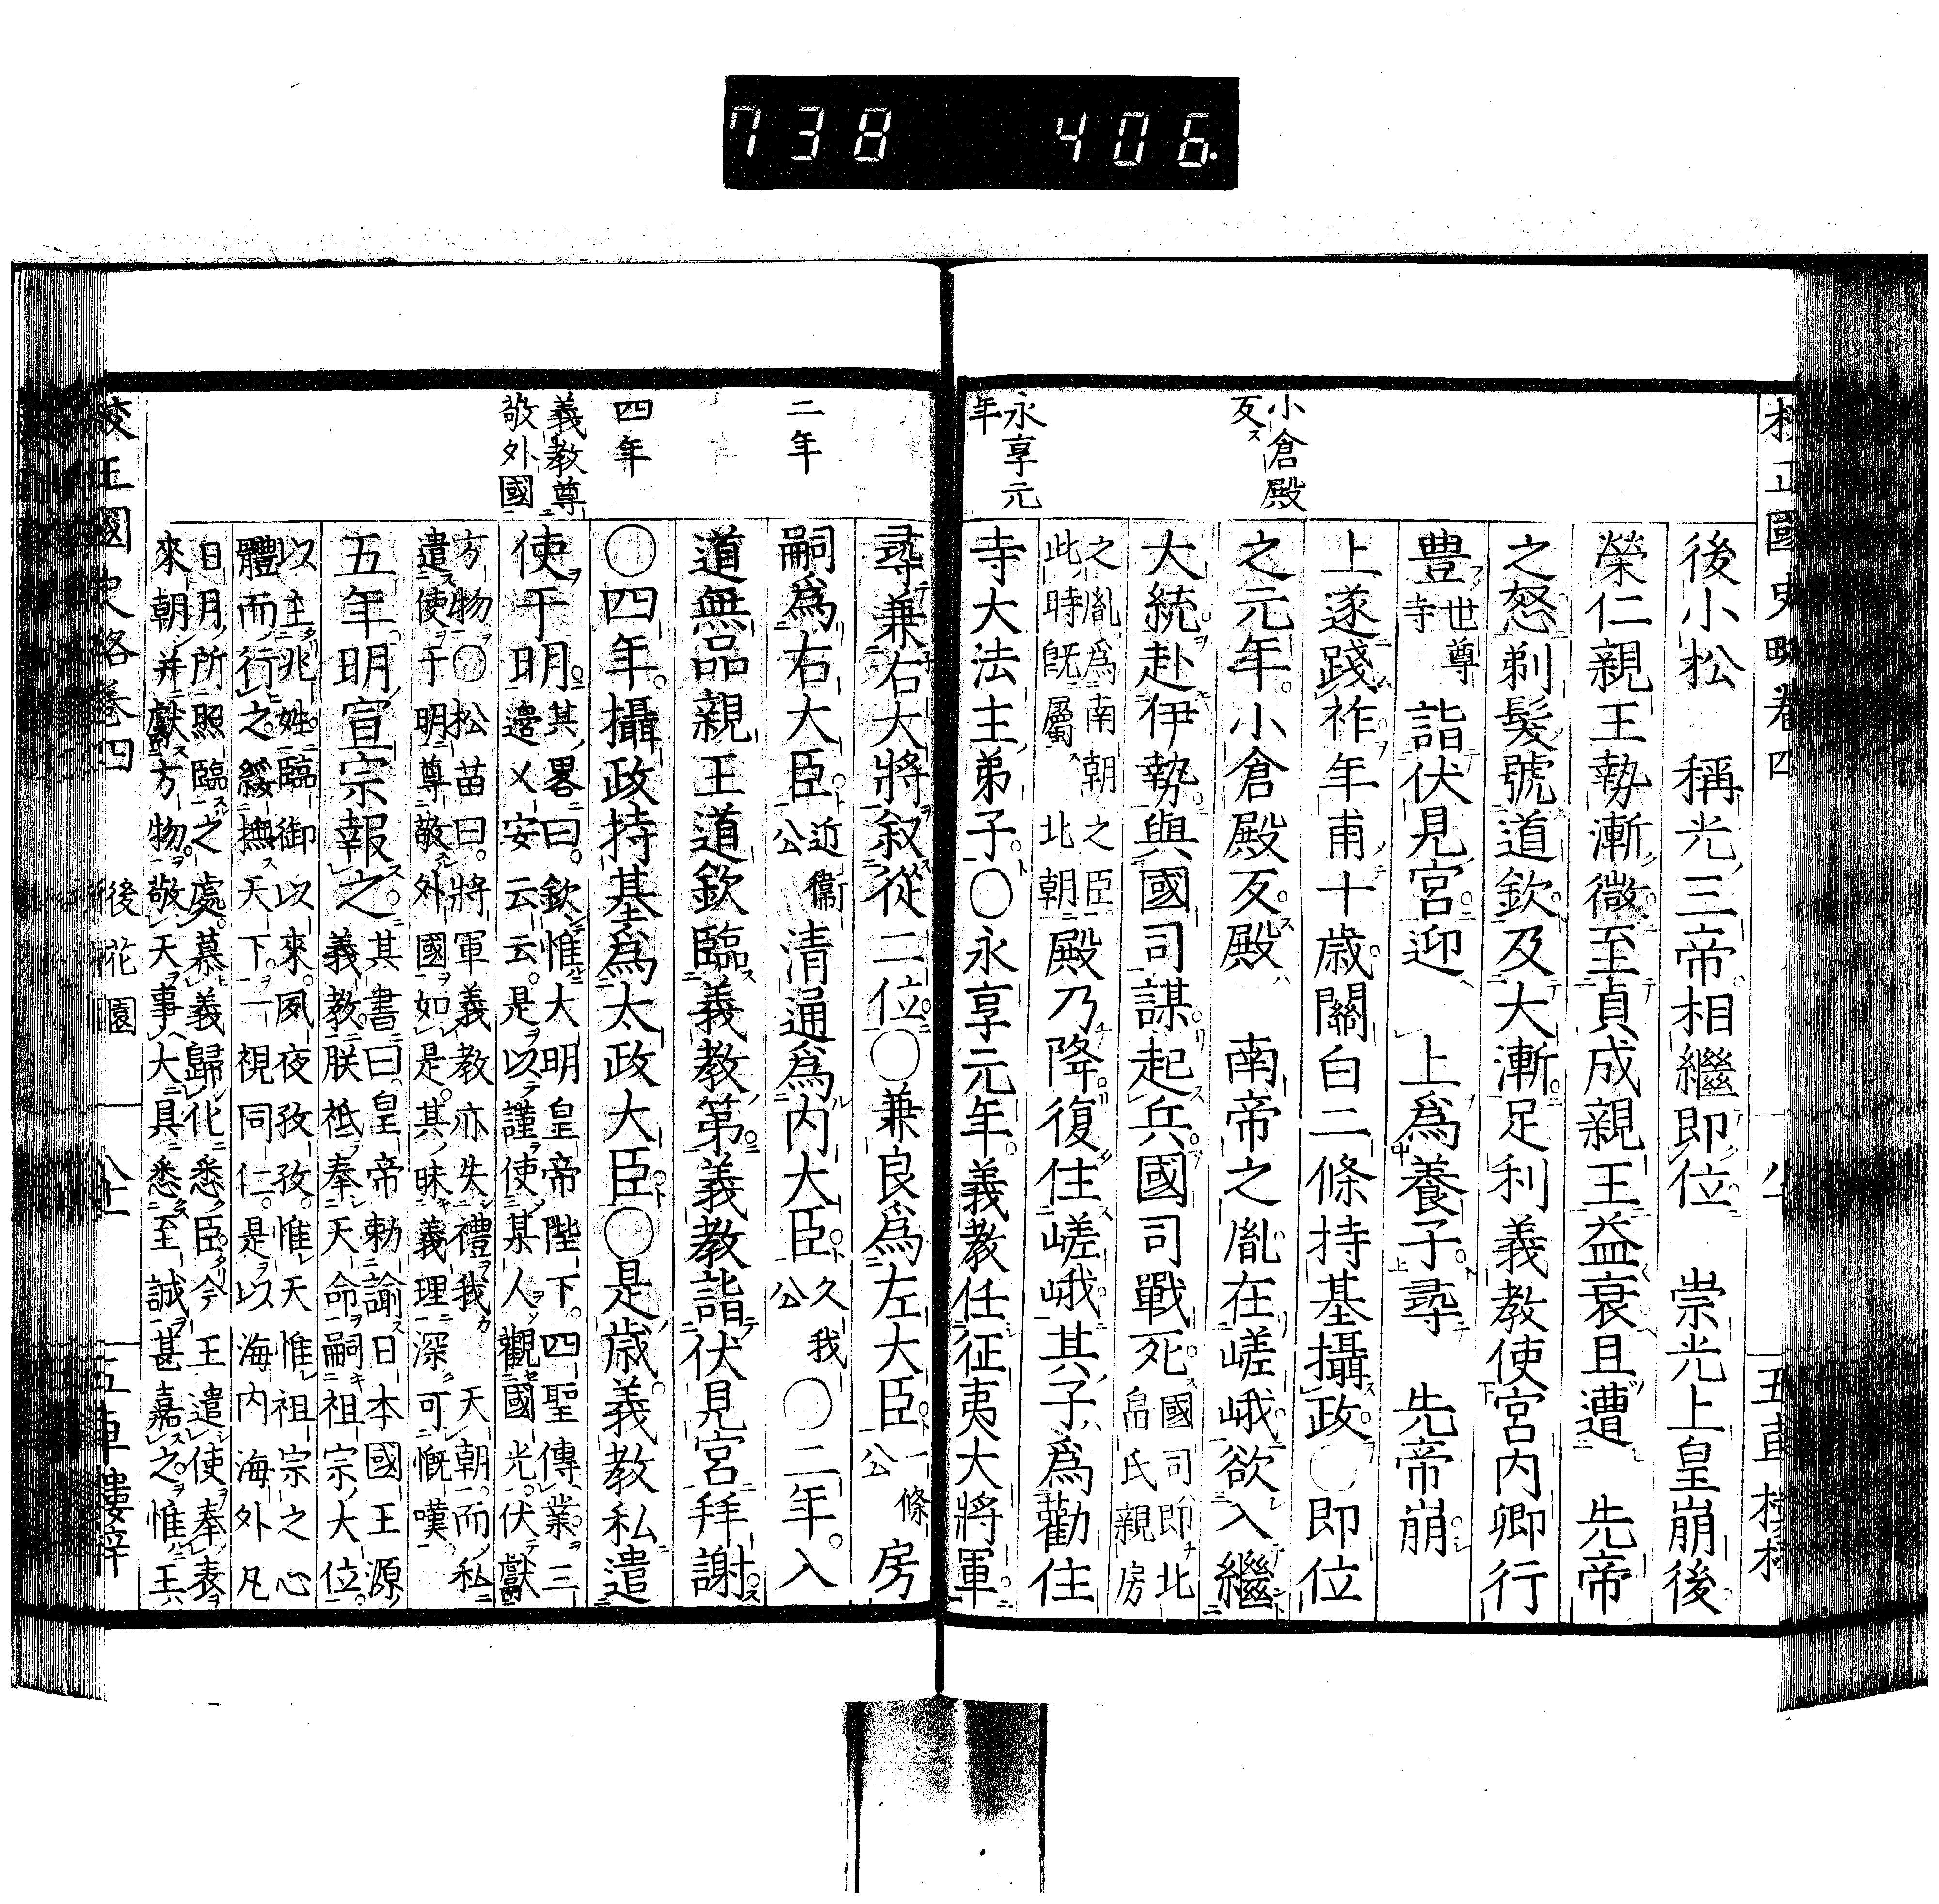 738 406.
後小松 稱光三帝相繼即位 崇光上皇崩後
榮仁親王勢漸微至貞成親王益衰且遭 先帝
之怒剃髮號道欽及大漸足利義教使宮内卿行
豊世尊寺 詣伏見宮迎 上爲養子尋 先帝崩
上遂踐祚年甫十歳關白二條持基攝政○即位
之元年小倉殿反殿 南帝之胤在嵯峨欲入繼
大統赴伊勢與國司謀起兵國司戰死國司即北畠氏親房
之胤爲南朝之臣此時旣屬北朝殿乃降復住嵯峨其子爲勸住
寺大法主弟子○永享元年義教任征夷大將軍
小倉殿反
永享元年
尋兼右大將叙從二位○兼良爲左大臣一條公房
嗣爲右大臣近衞公清通爲内大臣久我公○二年入
道無品親王道欽臨義教第義教詣伏見宮拜謝
○四年攝政持基爲太政大臣○是歳義教私遣
使于明其畧曰欽惟大明皇帝陛下四聖傳業三邉乂安云云是以謹使某人觀國光伏獻
方物○松苗曰將軍義教亦失禮我 天朝而私遣使于明尊敬外國如是其昧義理深可慨嘆
五年明宣宗報之其書曰皇帝勅諭日本國王源義教朕祗奉天命嗣祖宗大位
以主兆姓臨御以來夙夜孜孜惟天惟祖宗之心體而行之綏撫天下一視同仁是以海内海外凡
日月所照臨之處慕義歸化悉臣今王遣使奉表來朝并獻方物敬天事大具悉至誠甚嘉之惟王
二年
四年
義教尊敬外國
後花園